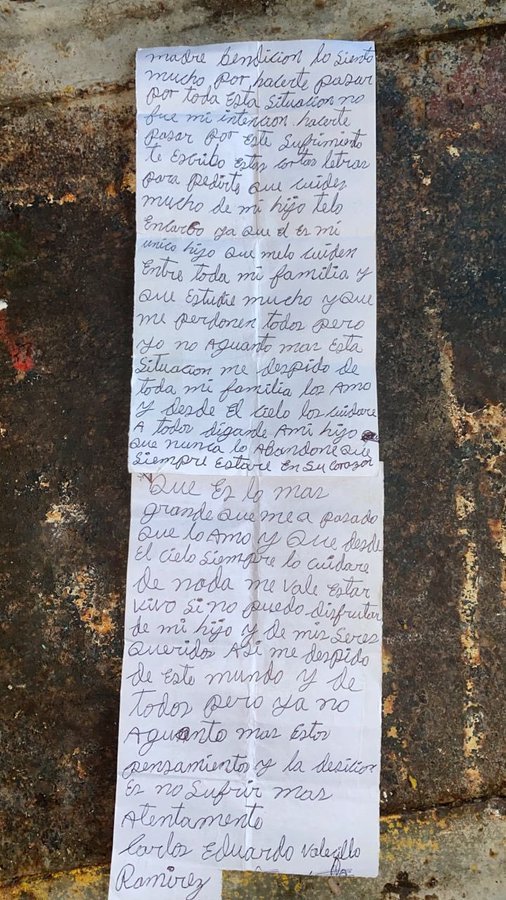 madre bendicion lo siento
mucho por hacerte pasar
por toda Esta situacion no
fue mi intencion hacerte
pasar por Este Sufrimiento
te Escribo Estas cortas letras
para pedirte que cuides
mucho de mi hijo telo
Encargo ya que el Es mi
unico hijo que melo cuiden
Entre toda mi familia y
que Estudie mucho y que
me perdonen todos pero
yo no Aguanto mas Esta
Situacion me despido de
toda mi familia los Amo
y desde El cielo los cuidare
A todos diganle Ami hijo
que nunca lo Abandone que
Siempre Estare En Su corazon
Que Es lo mas
grande que me a pasado
que lo Amo y que desde
El cielo Siempre lo cuidare
de nada me vale Estar
vivo si no puedo disfrutar
de mi hijo y de mis Seres
queridos Asi me despido
de Este mundo y de
todos pero ya no
Aguanto mas Estos
pensamientos y la desicion
Es no Sufrir mas
Atentamento
Carlos Eduardo
Ramirez